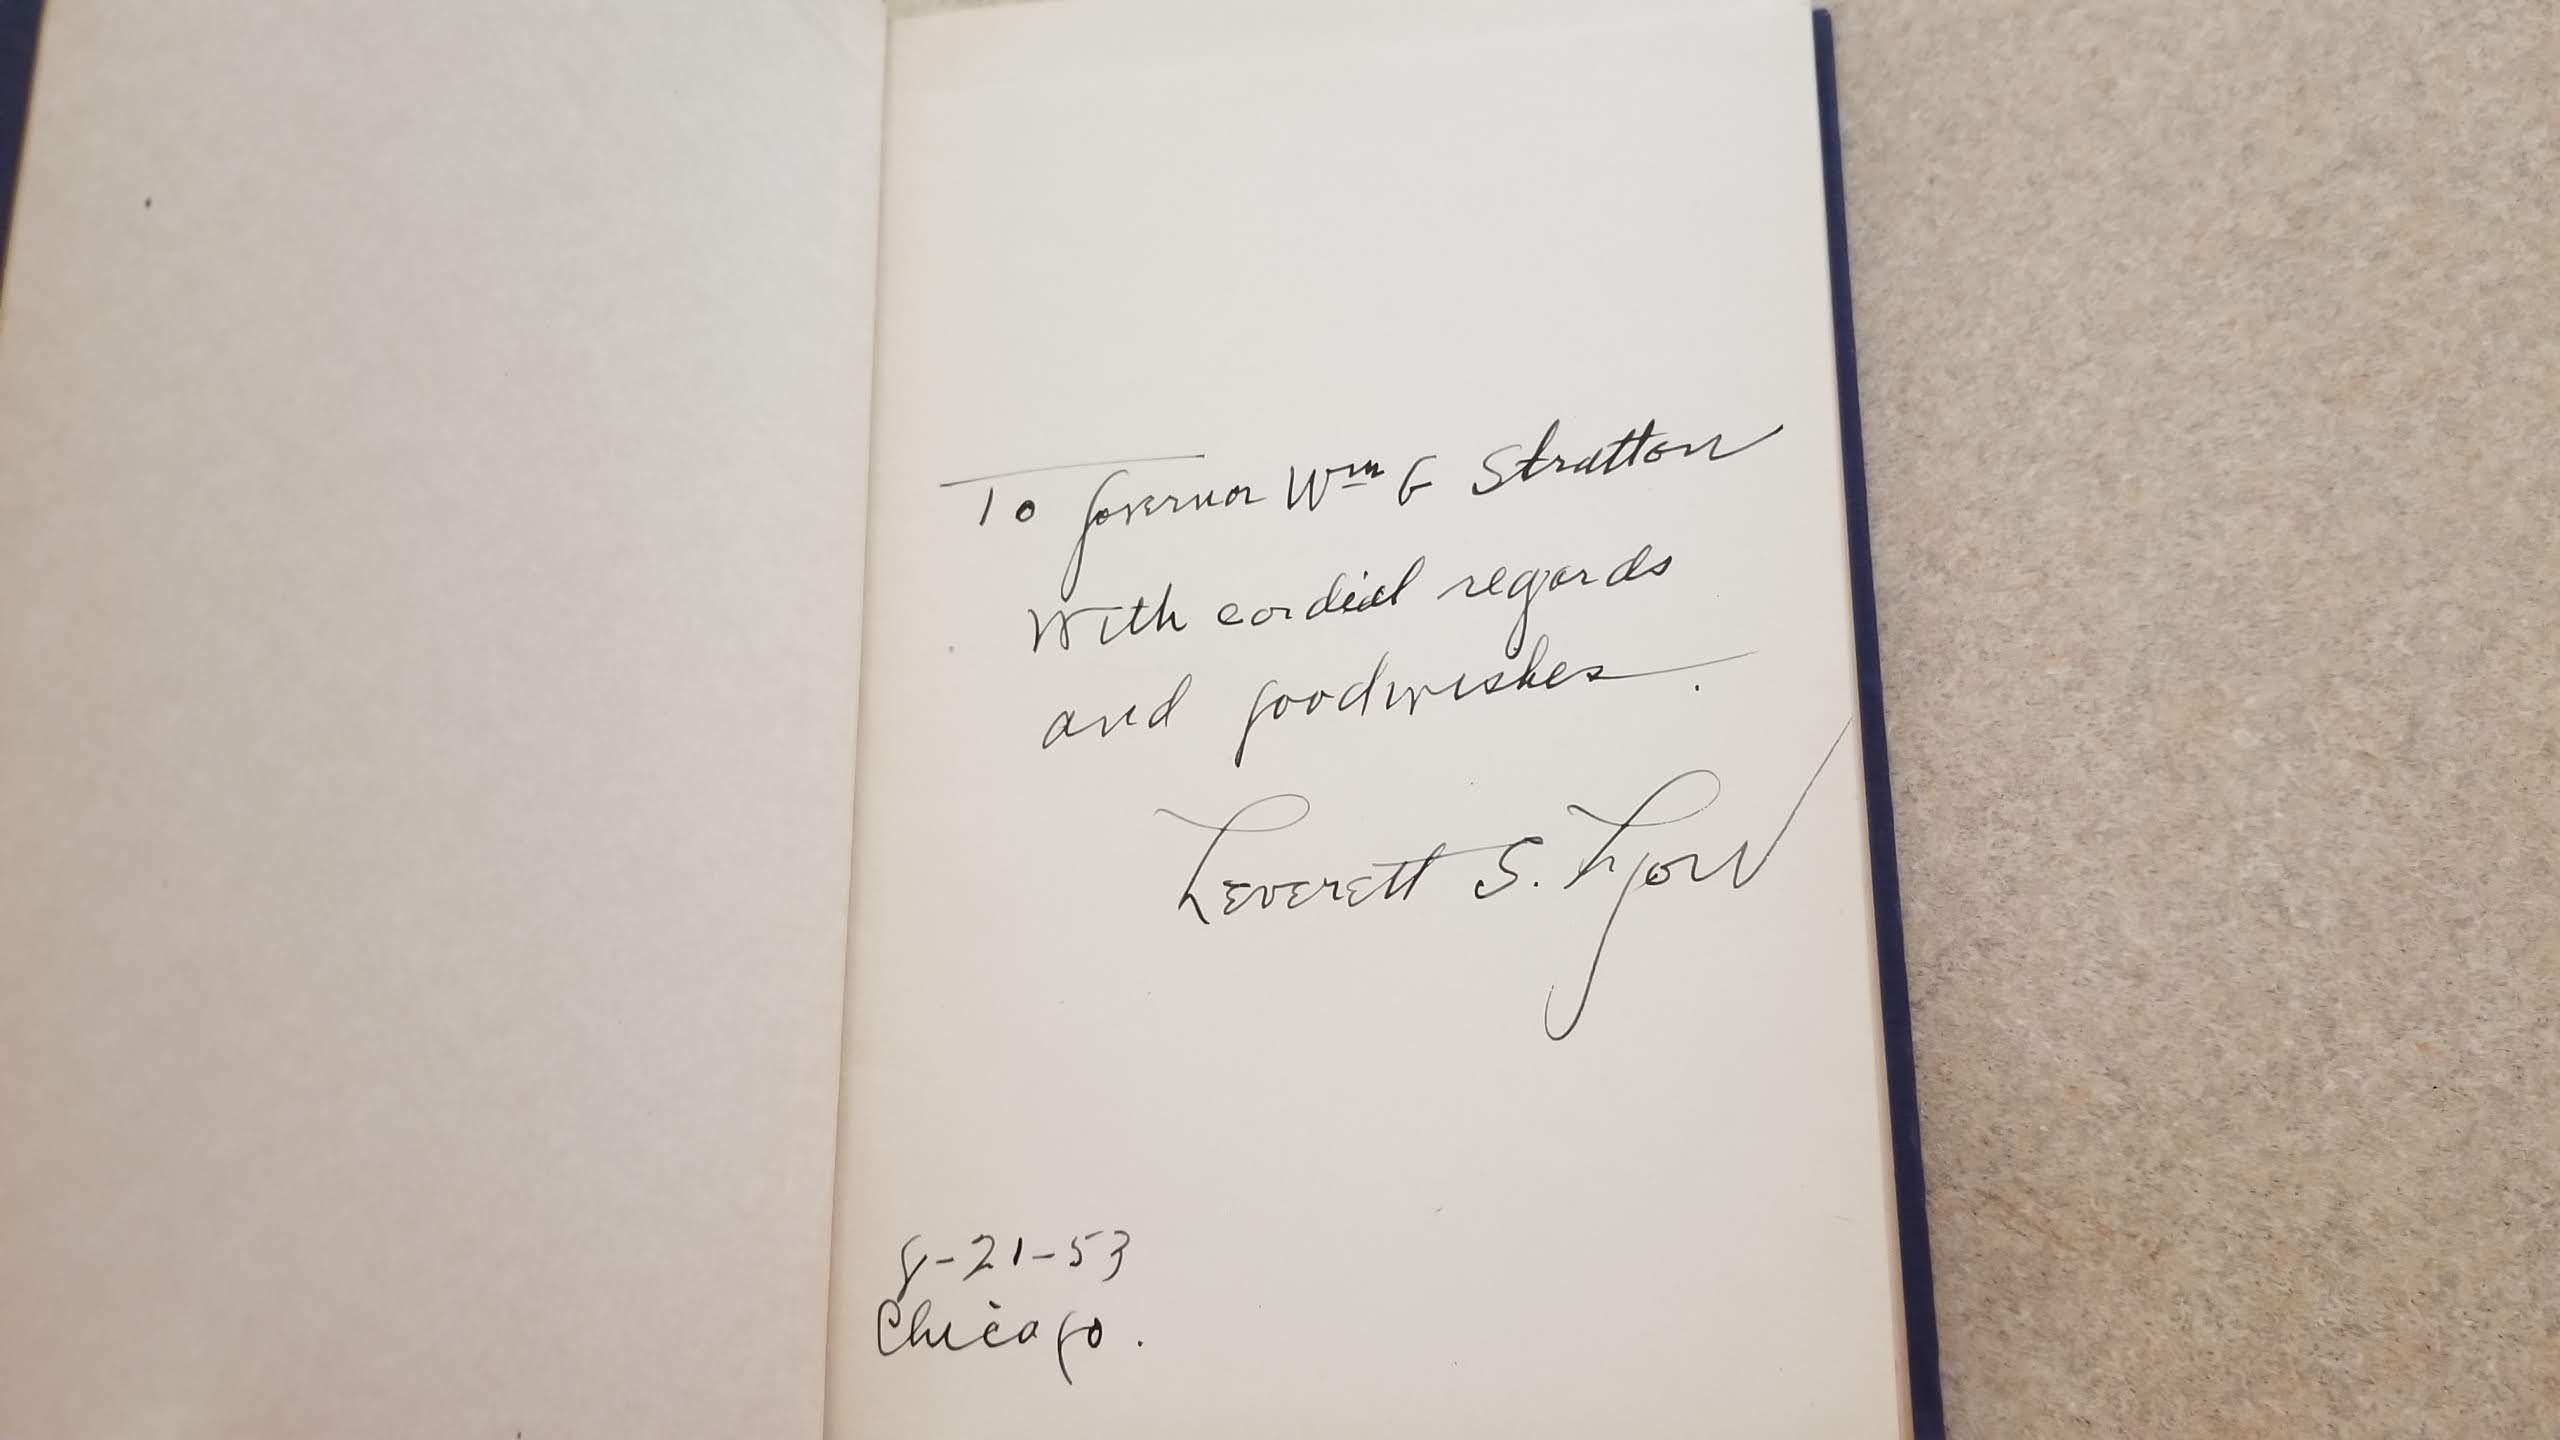 To Governor Wm G Stratton
With cordial regards
and goodwishes.
Leverett S. Lyon
8-21-53
Chicago.